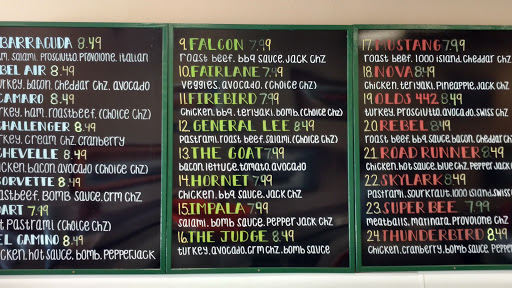 BARRACUDA 8.49
salami, prosciutto, provolone, italian
BEL AIR 8.49
turkey, bacon, cheddar chz, avocado
CAMARO 8.49
turkey, ham, roastbeef, (choice chz)
CHALLENGER 8.49
turkey, cream chz, cranberry
CHEVELLE 8.49
chicken, bacon, avocado (choice chz)
CORVETTE 8.49
roastbeef, bomb sauce, crm chz
DART 7.99
Pastrami (choice chz)
EL CAMINO 8.49
chicken, hot sauce, bomb, pepperjack
9. FALCON 7.99
roast beef, bbq sauce, jack chz
10. FAIRLANE 7.49
veggies, avocado, (choice chz)
11. FIREBIRD 7.99
chicken, bbq, teriyaki, bomb, (choice chz)
12. GENERAL LEE 8.49
Pastrami, roast beef, salami, (choice chz)
13. THE GOAT 7.99
bacon, lettuce, tomato, avocado
14. HORNET 7.99
chicken, bbq sauce, jack chz
15. IMPALA 7.99
salami, bomb sauce, pepper jack chz
16. THE JUDGE 8.49
turkey, avocado, crm chz, bomb sauce
17. MUSTANG 7.99
roast beef, 1000 island, cheddar chz
18. NOVA 8.49
chicken, teriyaki, pineapple, jack chz
19. OLDS 442 8.49
turkey, prosciutto, avocado, swiss chz
20. REBEL 8.49
roast beef, bbq sauce, bacon, cheddar ch
21. ROAD RUNNER 8.49
chicken, hot sauce, blue chz, pepper jack
22. SKYLARK 8.49
Pastrami, sourkraut, 1000 island, swiss
23. SUPER BEE 7.99
meatballs, marinara, provolone chz
24. THUNDERBIRD 8.49
chicken, cranberry, bomb sauce, pepper jack